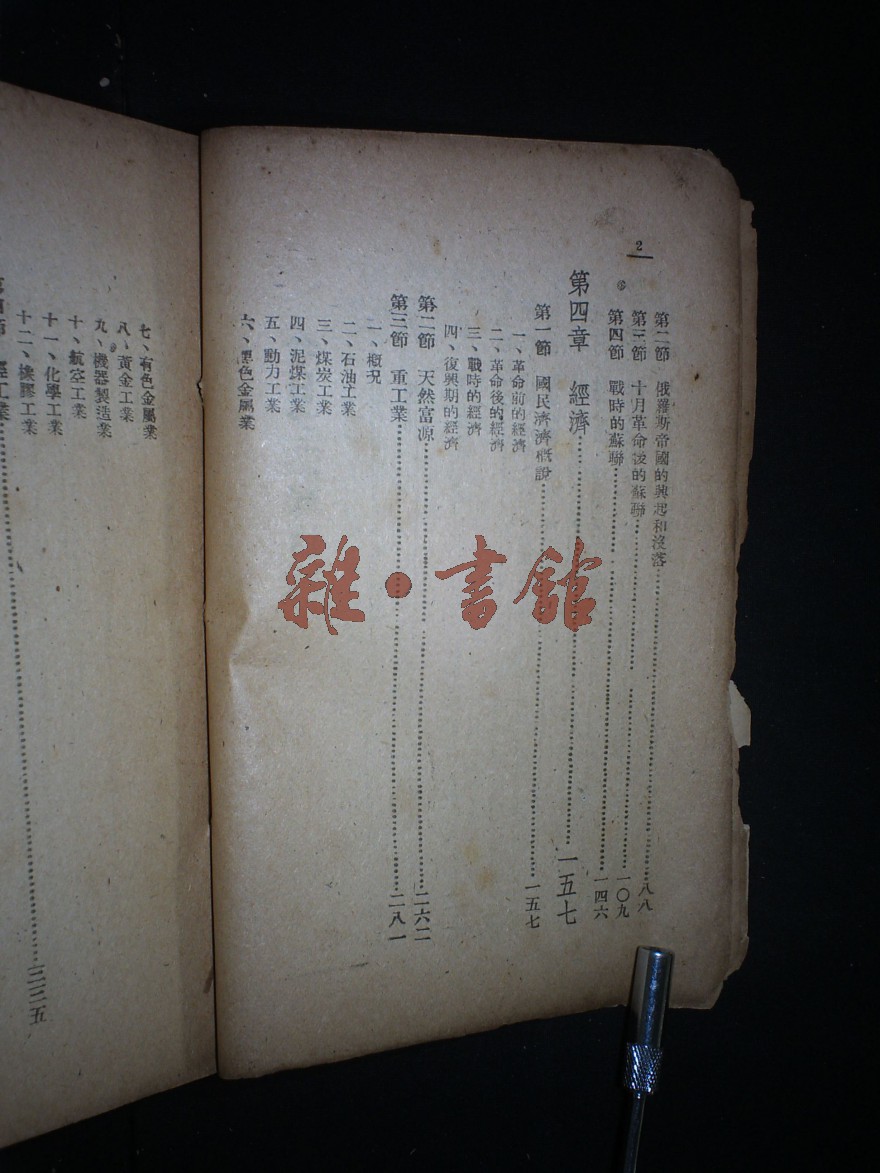 2
第二節　俄羅斯帝國的興起和沒落……八八
第三節　十月革命後的蘇聯……一〇九
第四節　戰時的蘇聯……一四六
第四章　經濟……一五七
第一節　國民濟濟概說……一五七
一、革命前的經濟
二、革命後的經濟
三、戰時的經濟
四、復興期的經濟
第二節　天然富源……二六二
第三節　重工業……二八一
一、概況
二、石油工業
三、煤炭工業
四、泥煤工業
五、動力工業
六、黑色金屬業
七、有色金屬業
八、黃金工業
九、機器製造業
十、航空工業
十一、化學工業
十二、橡膠工業
第四節　輕工業……三三五
雜·書館